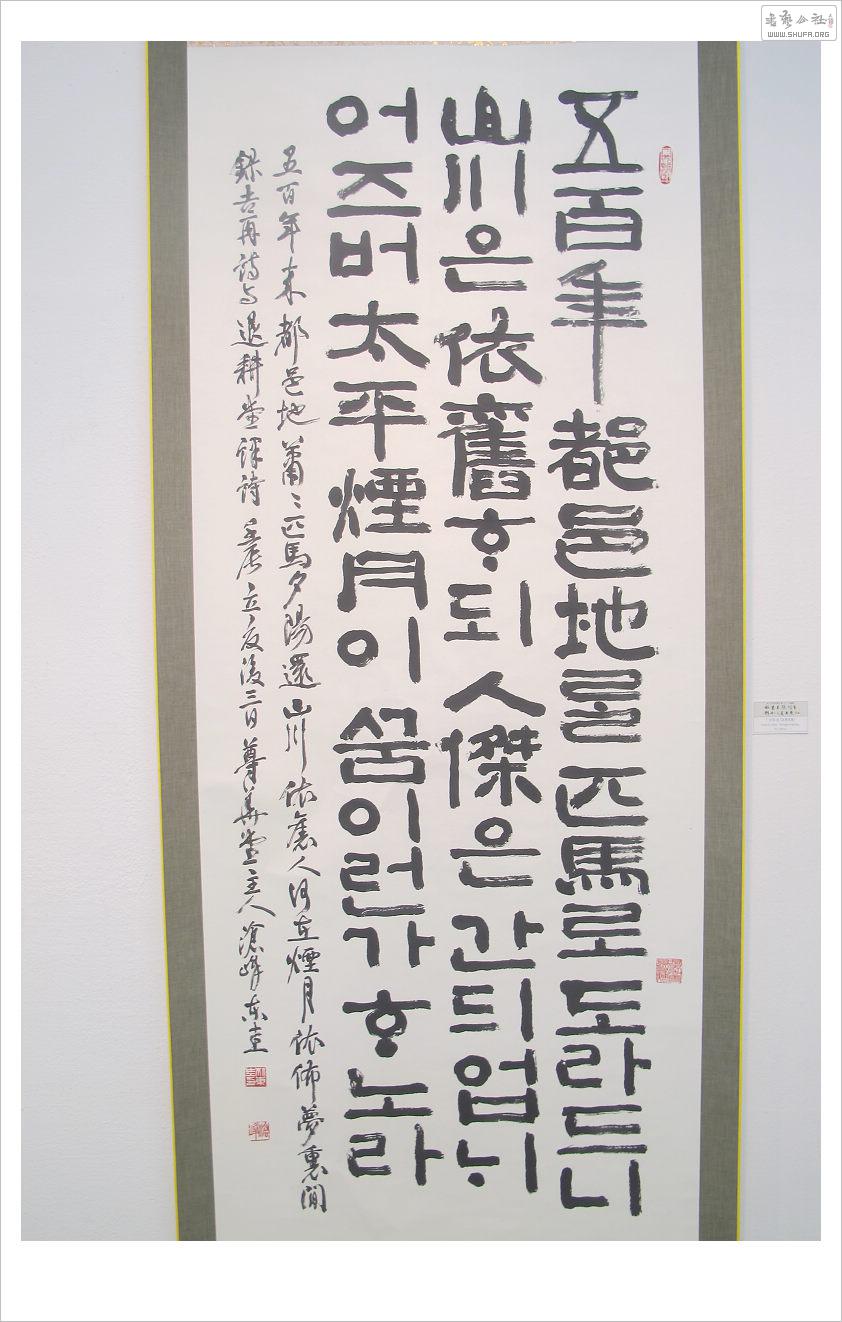 五百年都邑地를匹馬로도라드니
山川은依舊ᄒᆞ되人傑은간듸업ᄂᆡ
어즈버太平煙月이ᄭᅮᆷ이런가ᄒᆞ노라
五百年来都邑地蕭〻匹馬夕陽還山川依舊人何在煙月依佈夢裏間
錄吉再詩与退耕堂譯詩壬辰立夏後三日尊華堂主人滄峰东圭
书艺公社
WWW.SHUFA.ORG